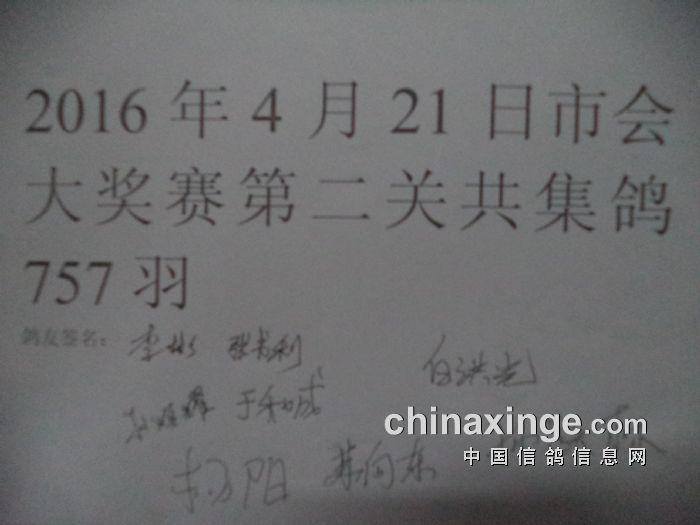 2016 年 4 月 21 日市会
大奖赛第二关共集鸽
757 羽
鸽友签名: 李彬 张长利
白洪光
于利成
chinaxinge.com
中国信鸽信息网
杨阳 苏向东